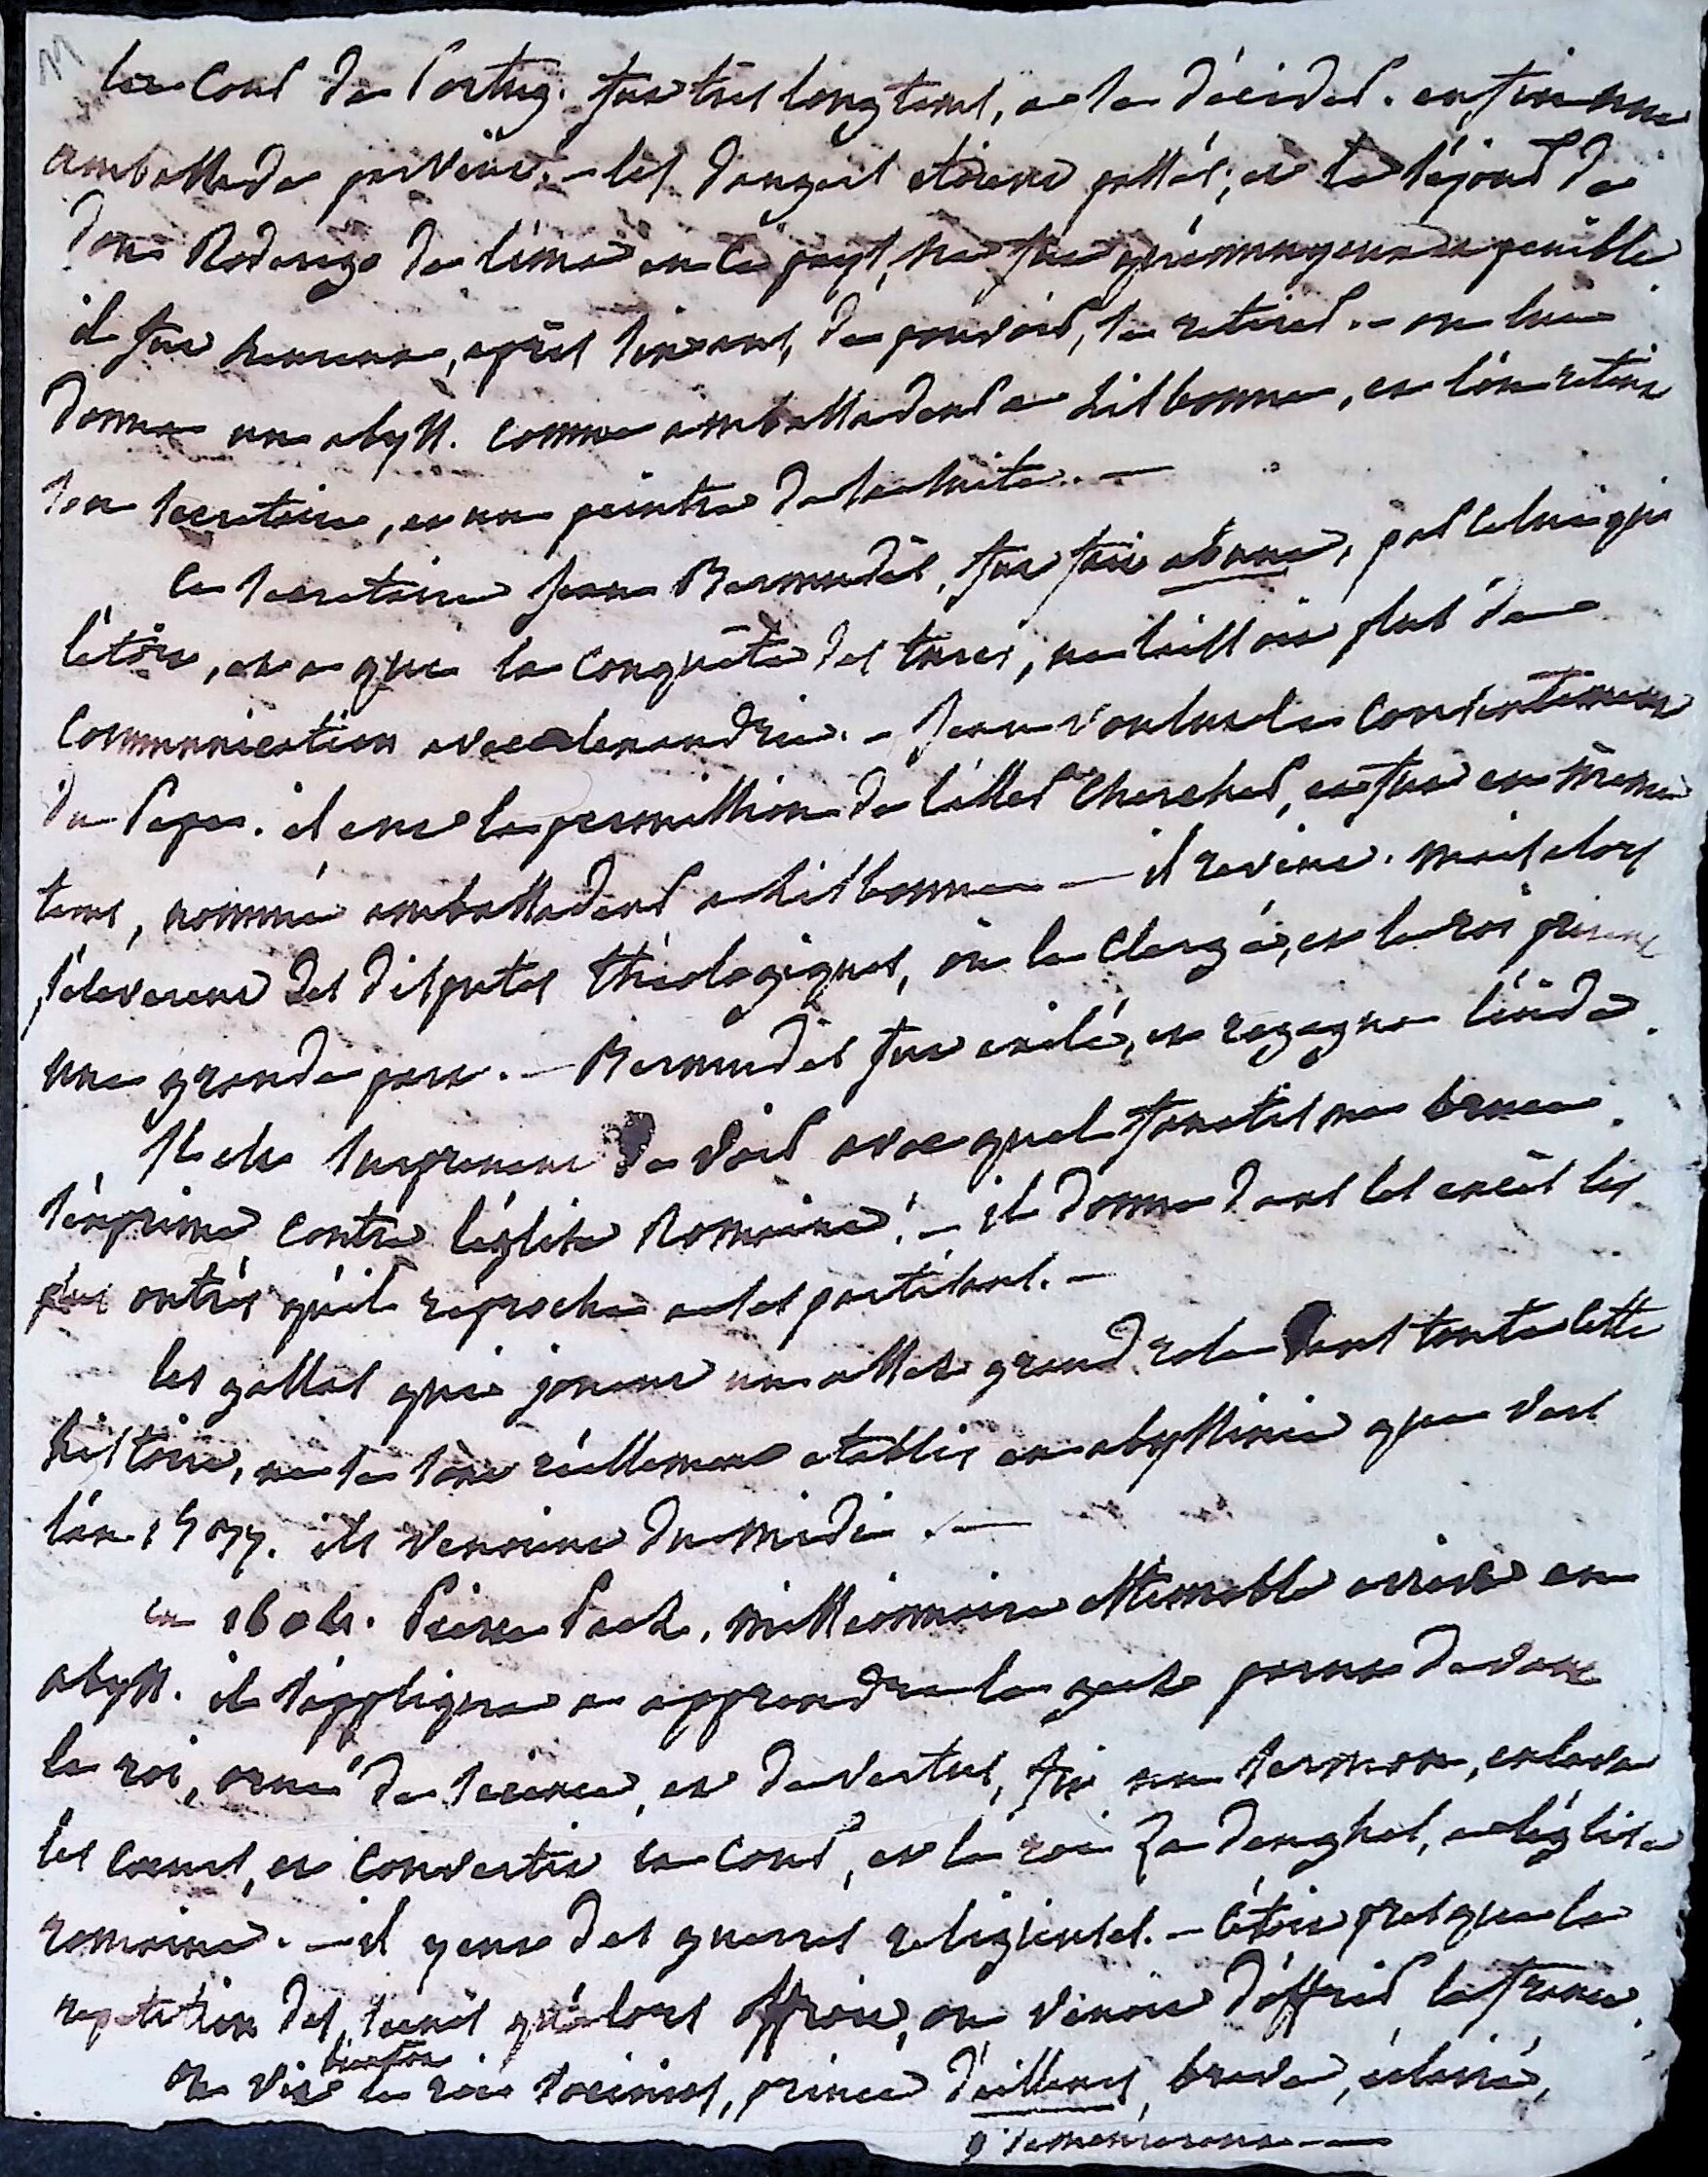 la Cour de Portug. fut très longtems, a se décider. enfin une
ambassade parvint. – les dangers étoient passés; et le séjour de
don Roderigo de lima en ce pays, ne fut qu'ennuyeux et penible
il fut heureux, après six ans, de pouvoir, se retirer. – on lui
donna un abyss. comme ambassadeur a Lisbonne, et l'on retint
son secretaire, et un peintre de sa suite. —
ce secretaire Jean Bermudès, fut fait abuna, par celui qui
l'étoit, et a qui la conquête des turcs, ne laissoit plus de
communication avec alexandrie. – Jean voulut le consentement
du Pape. il eut la permission de l'aller chercher, et fut en même
tems, nommé ambassadeur a Lisbonne — il revint. mais alors
s'éleverent des disputes théologiques, où le Clergé, et le roi prirent
une grande part. – Bermudes fut exilé, et regagna l'inde.
Il est surprenant de voir avec quel fanatisme bruce
s'exprime contre l'église Romaine! – il donne dans les excès les
plus outrés qu'il reproche a ses partisans. –
les gallas qui jouent un assez grand role dans toute cette
histoire, ne se sont réellement etablis en abyssinie que vers
l'an 1577. ils venoient du midi. —
en 1604. Pierre Paez, missionnaire estimable arriva en
abyss. il s'appliqua a apprendre le geez parut devant
le roi, orné de science, et de vertus, fit un sermon, enleva
les coeurs, et convertit la cour, et le roi Za denghel, a l'église
romaine. – il y eut des guerres religieuses. – c'étoit presque la
repetition des scenes qu'alors offroit, ou venoit d'offrir la france.
On vit bientôt le roi socinios, prince d'ailleurs, brave, éclairé,